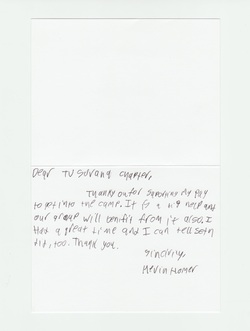 Dear TU Chapter,
Thanky out for my pay
to get into the camp. It is a big help and
our group will benifit from it also. I
had a great time and I can tell
did, too. Thank you.
Sincerly,
Kevin Homer